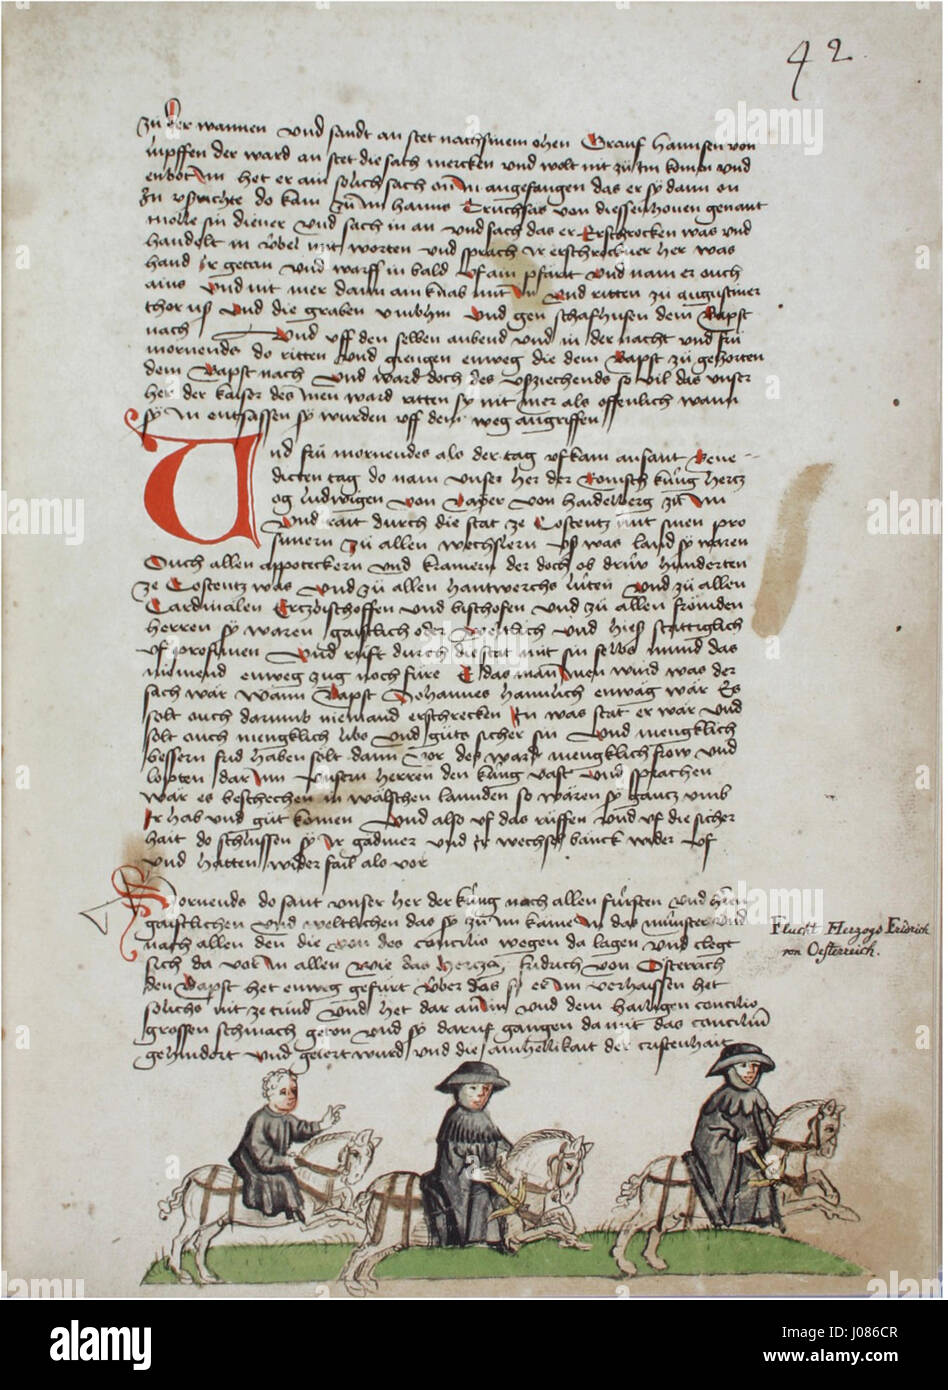 42
zů der wannen und sandt an stet nach sinem ohen Grauf hannsen von
lupffen der ward an stet die sach mercken und wolt nit zů Im komen und
enbot Im het er ain solich sach on In angefangen das er sy dann on
In volbrächte do kam zů Im hanns Truchsäs von diessenhouen genant
molle sin diener und sach in an und sach das er Erschrocken was und
handelt in übel mit worten und sprach Ir erschrockner her was
hand Ir getan und warff in bald uf ain pfärit und nam er ouch
ains und nit mer dann ain knab mit In und ritten zů augustiner
thor uß und die graben umbhin und gen schafhusen dem Bapst
nach und uff den selben aubend und in der nacht und frü
mornends do ritten und giengen enweg die dem Bapst zů gehorten
dem Bapst nach und ward doch des ußziechends so vil das unser
her der kaiser des Inen ward ratten sy nit mer als offenlich wann
sy In entsassen sy wurden uff dem weg angriffen
Und frü mornendes als der tag uf kam an sant Bene
dicten tag do nam unser her der Römsch küng hertz
og ludwigen von Bayer von haidelberg zů Im
und rait durch die stat ze Costentz mit sinen pro
sunern zů allen wechslern uß was land sy waren
Ouch allen appoteckern und kramern der doch ob drüw hunderten
ze Costentz was und zů allen hantwerchs lüten und zů allen
Cardinälen Ertzbischoffen und bischofen und zů allen frömden
herren sy waren gaistlich oder weltlich und hieß stättiglich
uf prosunen und rüft durch die stat mit sin selbs mund das
niemend enweg zug noch füre E das man Inen wird was der
sach wär wann Bapst Johannes haimlich enwäg wär Es
solt ouch darumb niemand erschrecken In was stat er wär und
solt ouch mengklich libs und gůts sicher sin und mengklich
bessern frid haben solt dann vor des ward mengklich frow und
lopten darum unsern herren den küng vast und sprachen
wär es beschechen in wälschen lannden so wären sy gantz umb
Ir hab und gůt komen und also uf das rüffen und uf die sicher
hait do schlussen sy Ir gädmer und Ir wechsel bänck wider uf
und hatten wider fail als vor
Mornends do sant unser her der küng nach allen fürsten und herren
gaistlichen und weltlichen das sy zů Im käme In das münster und
nach allen den die von des concilio wegen da lagen und clegt
sich da vor In allen wie das Hertzog fridrich von Österrich
den Bapst het enweg gefürt über das sy es Im verhaissen het
solichs nit ze tůnd und het dar an Im und dem hailigen concilio
grossen schmach geton und sy daruf gangen damit das concilium
gehindert und geirrt wurd und die ainhellikait der cristenhait
Flucht Herzogs Fridrich
von Oesterreich.
alamy stock photo
J086CR
www.alamy.com